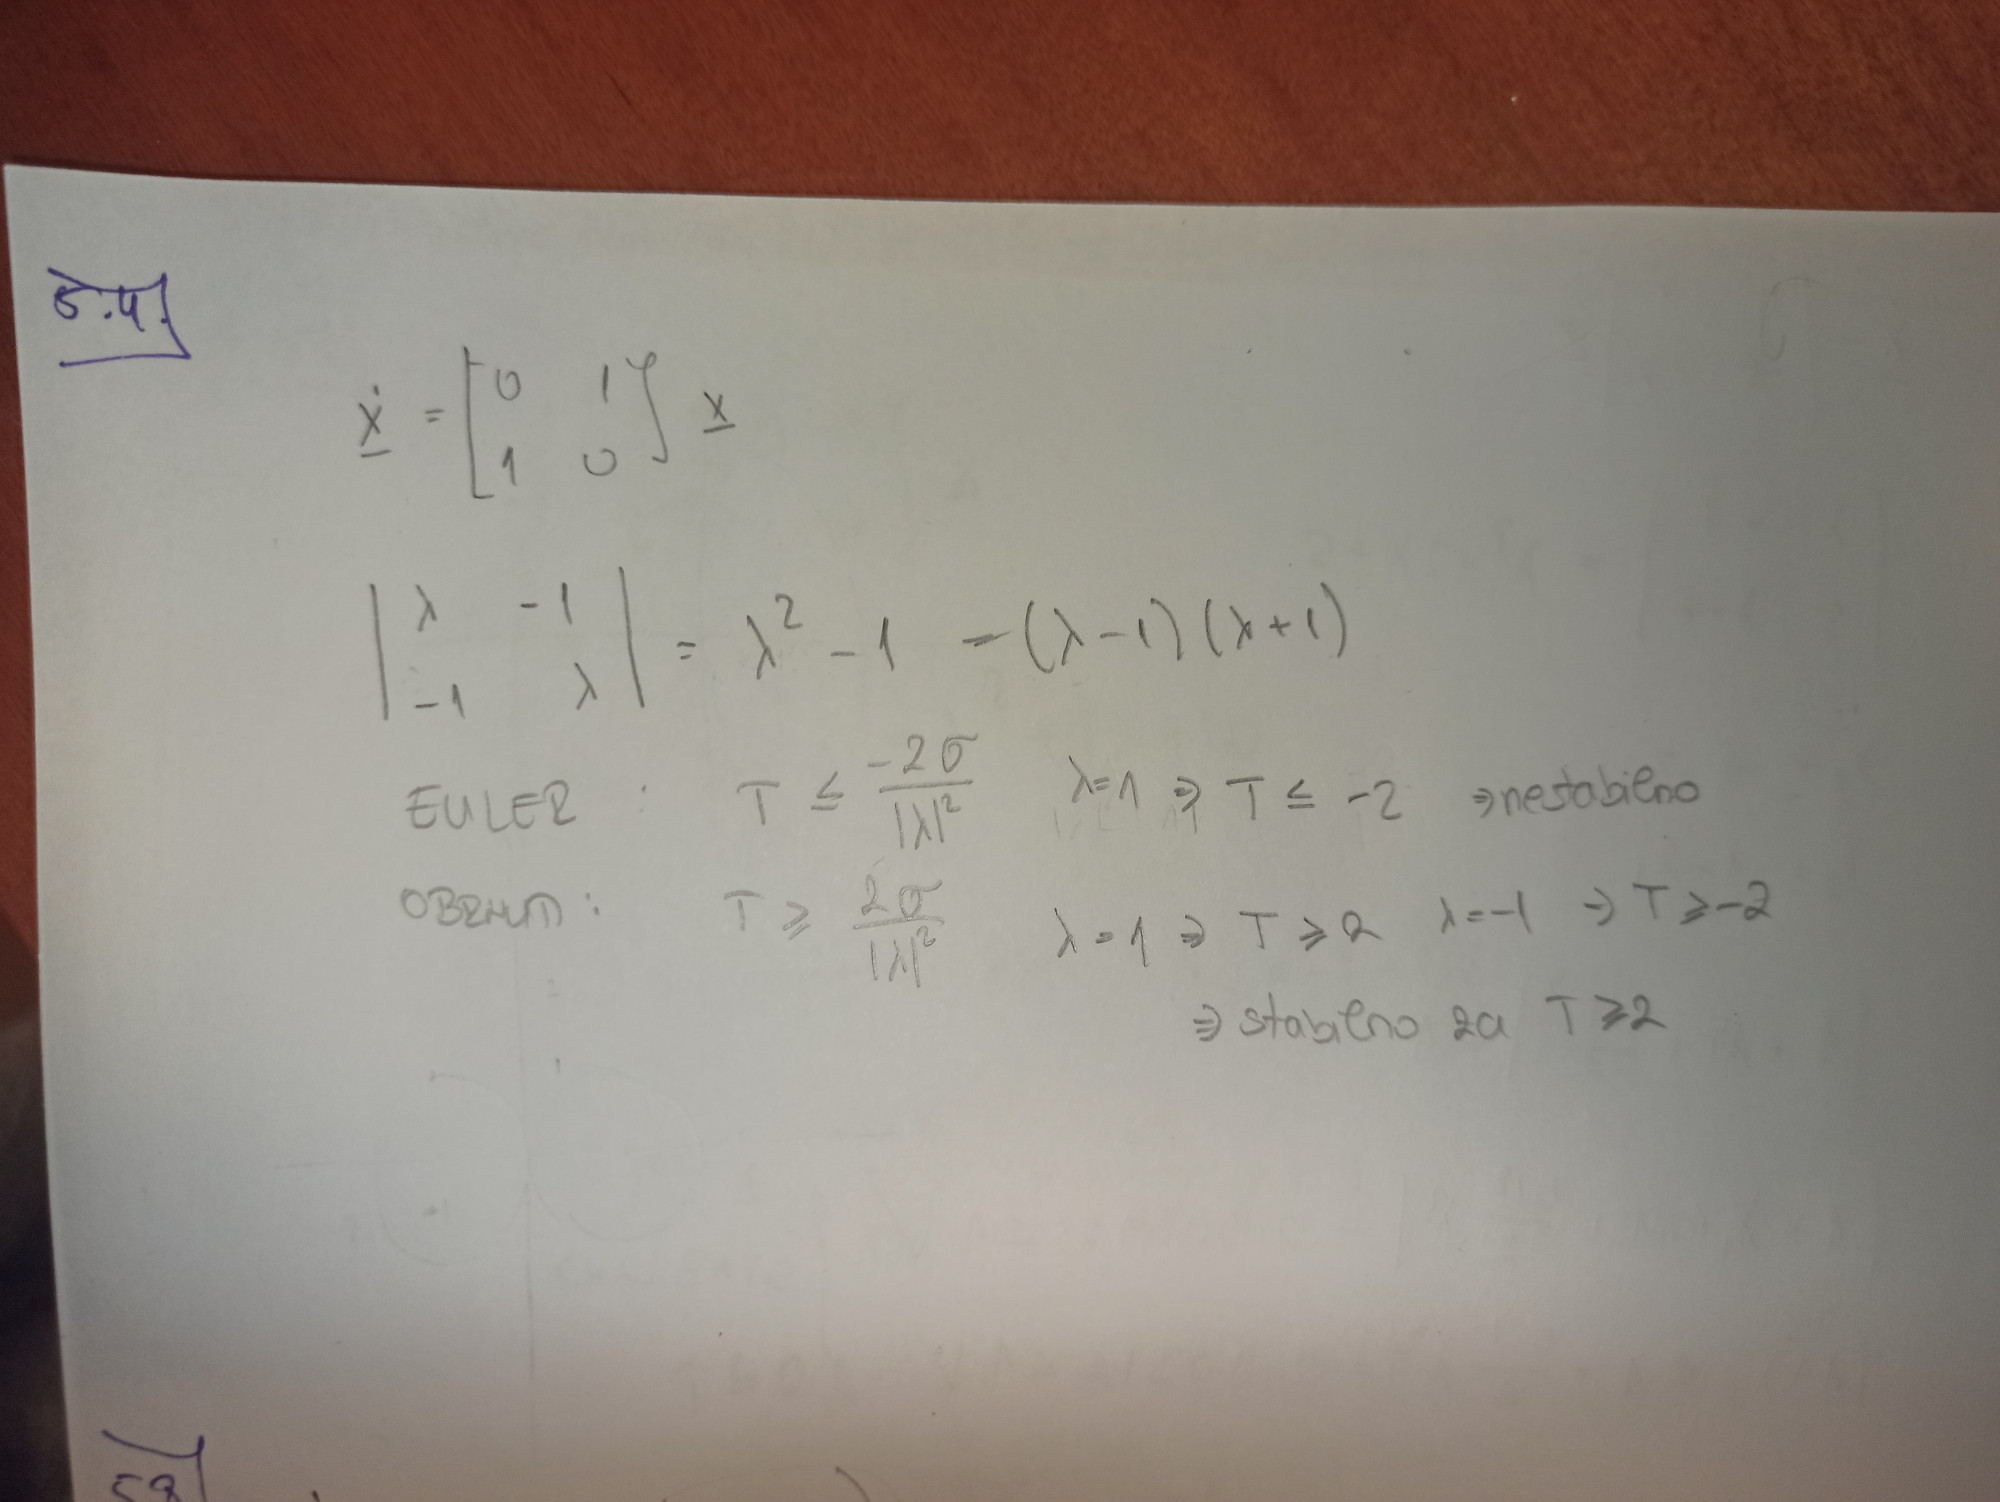 5.4.
ẋ = [0 1
1 0] x
|λ -1
-1 λ| = λ² - 1 = (λ-1)(λ+1)
EULER : T ≤ -2σ/|λ|² λ=1 ⇒ T ≤ -2 ⇒ nestabilno
OBRNUTI : T ≥ 2σ/|λ|² λ=1 ⇒ T ≥ 2 λ=-1 ⇒ T ≥ -2
⇒ stabilno za T ≥ 2
58